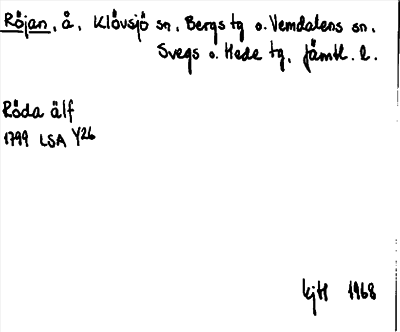 Röjan, å, Klövsjö sn, Bergs tg o. Vemdalens sn.
Svegs o. Hede tg, Jämtl. l.
Röda älf
1799 LSA Y26
kjH 1968